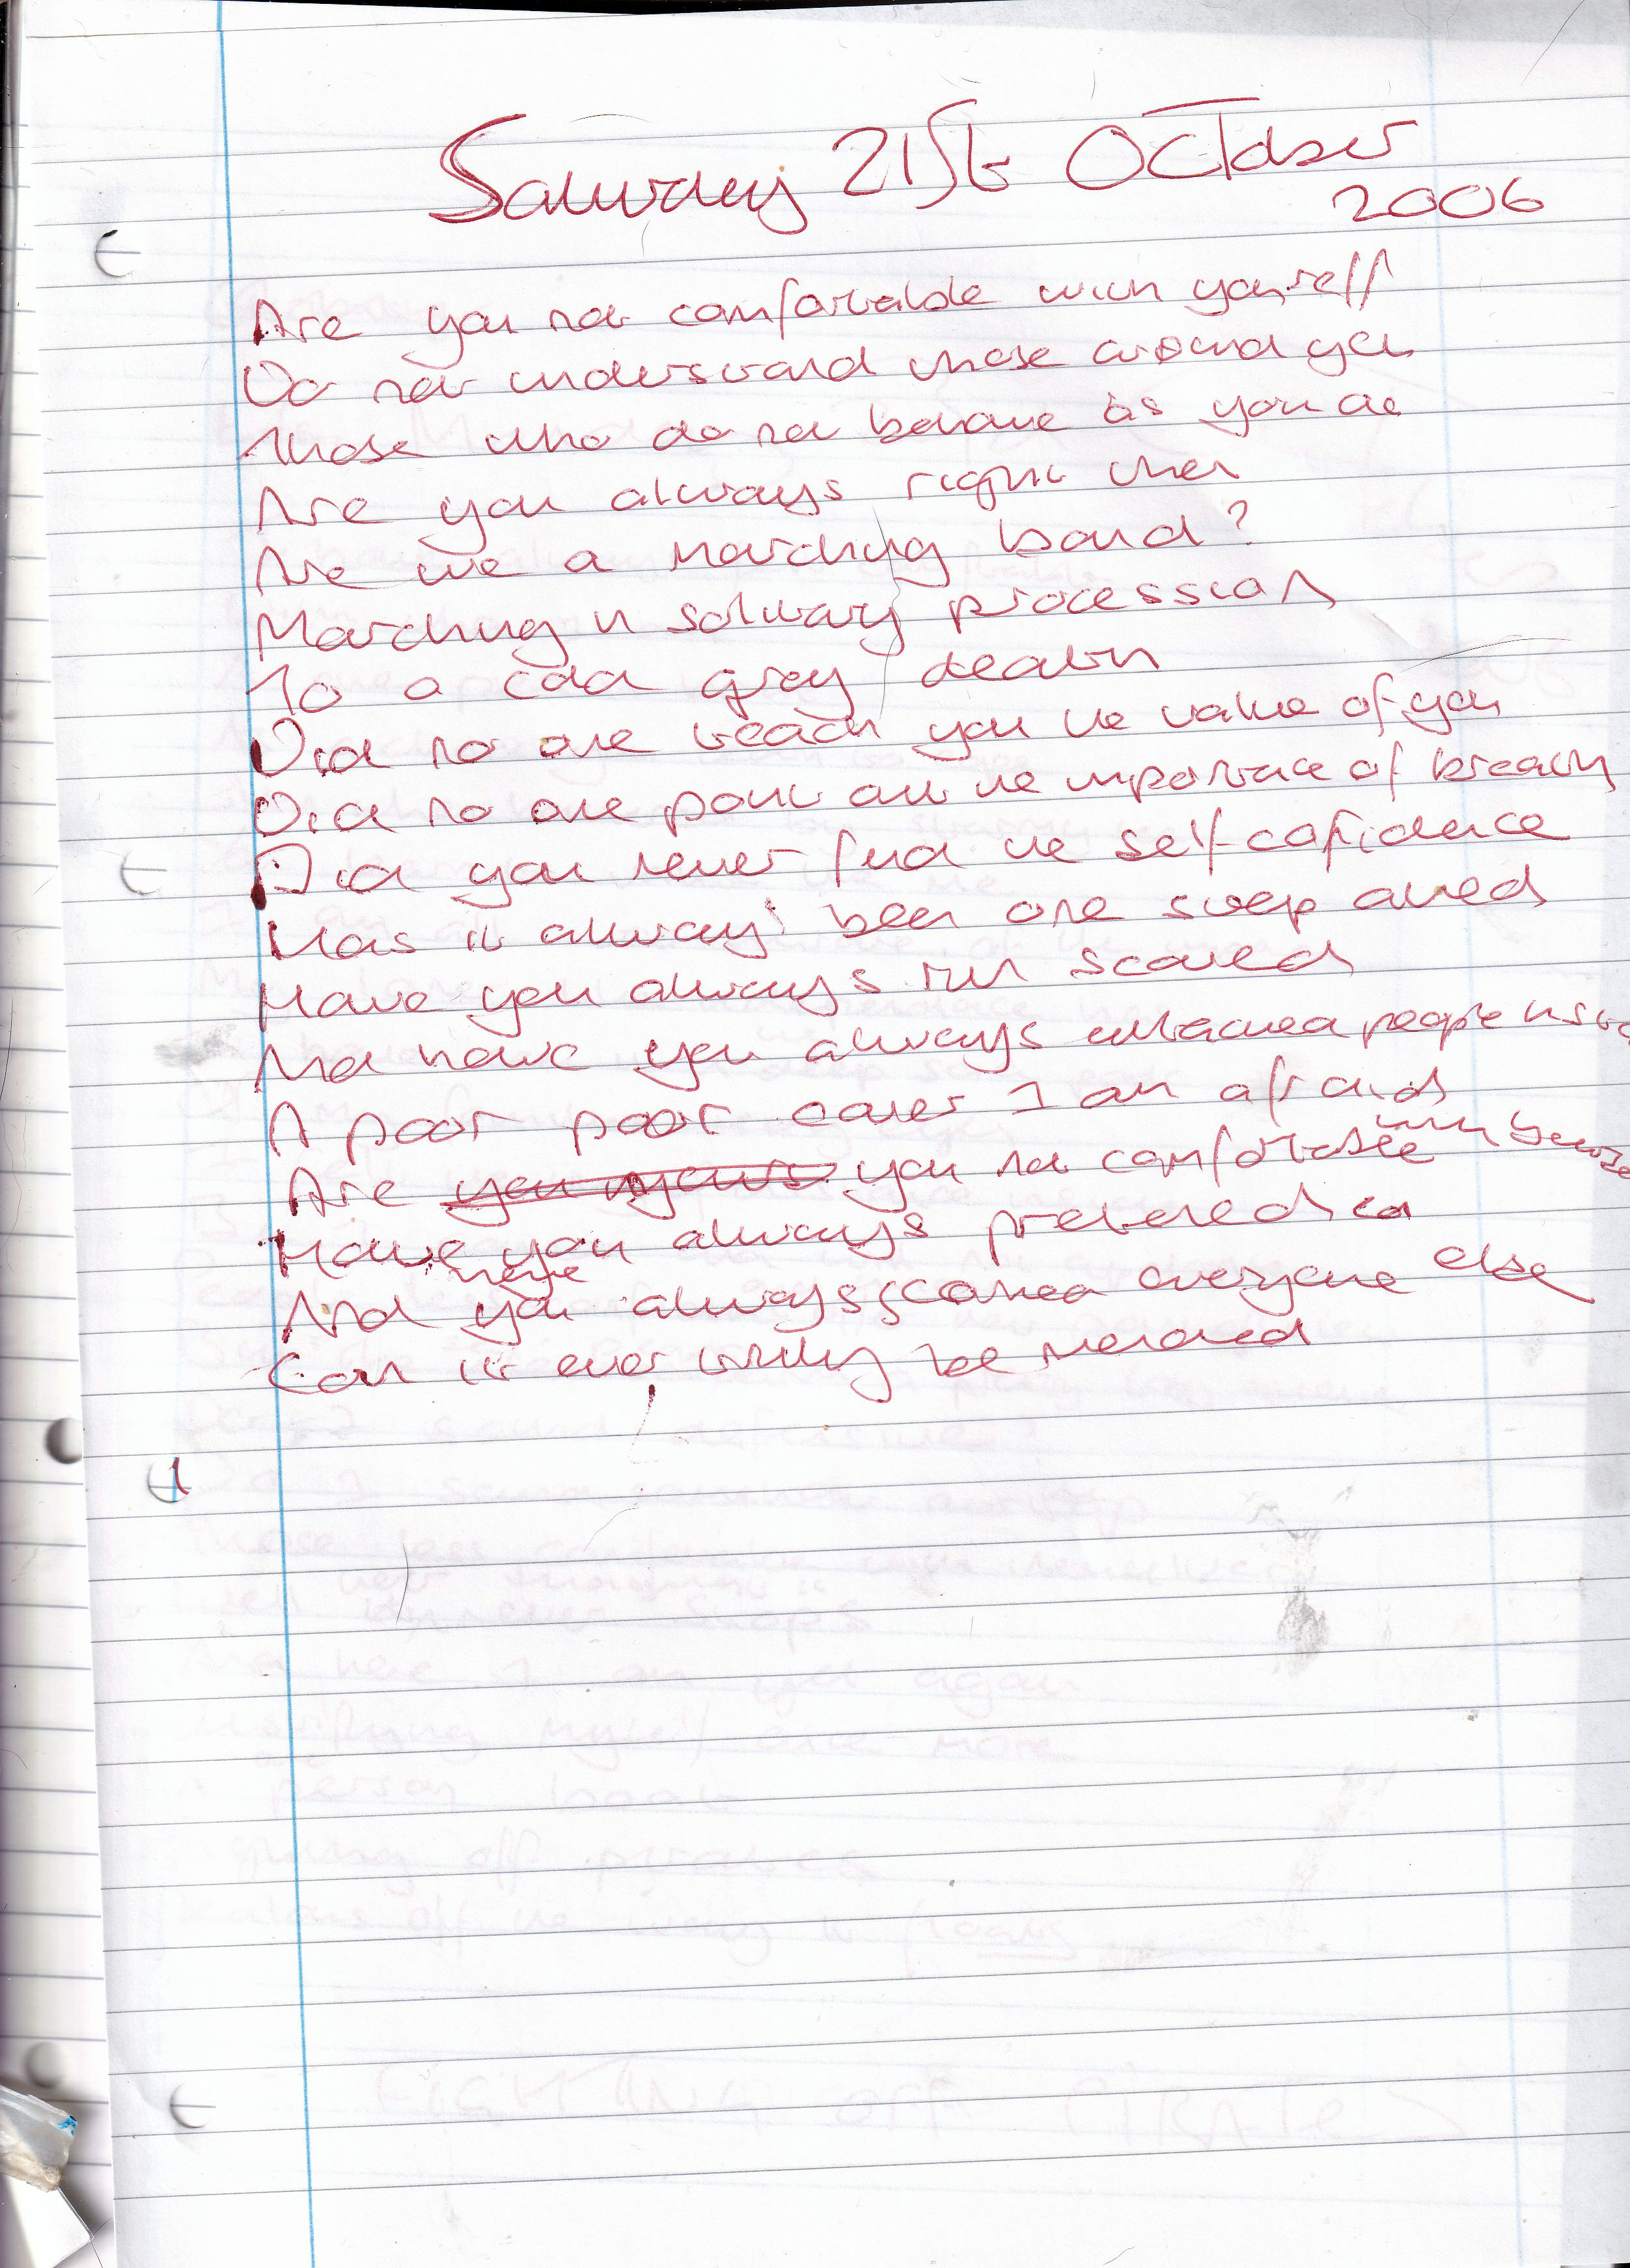 Saturday 21st October
2006
Are you not comfortable with yourself
Do not understand those around you
Those who do not behave as you do
Are you always right then
Are we a marching band?
Marching in solitary procession
To a cold grey death
Did no one teach you the value of you
Did no one point out the importance of breath
Did you never find the self-confidence
Has it always been one step ahead
Have you always run scared
And have you always people
A poor poor I am afraid
Are you not comfortable with
Have you always pretended
And you have always scorned everyone else
Can it ever truly be mended